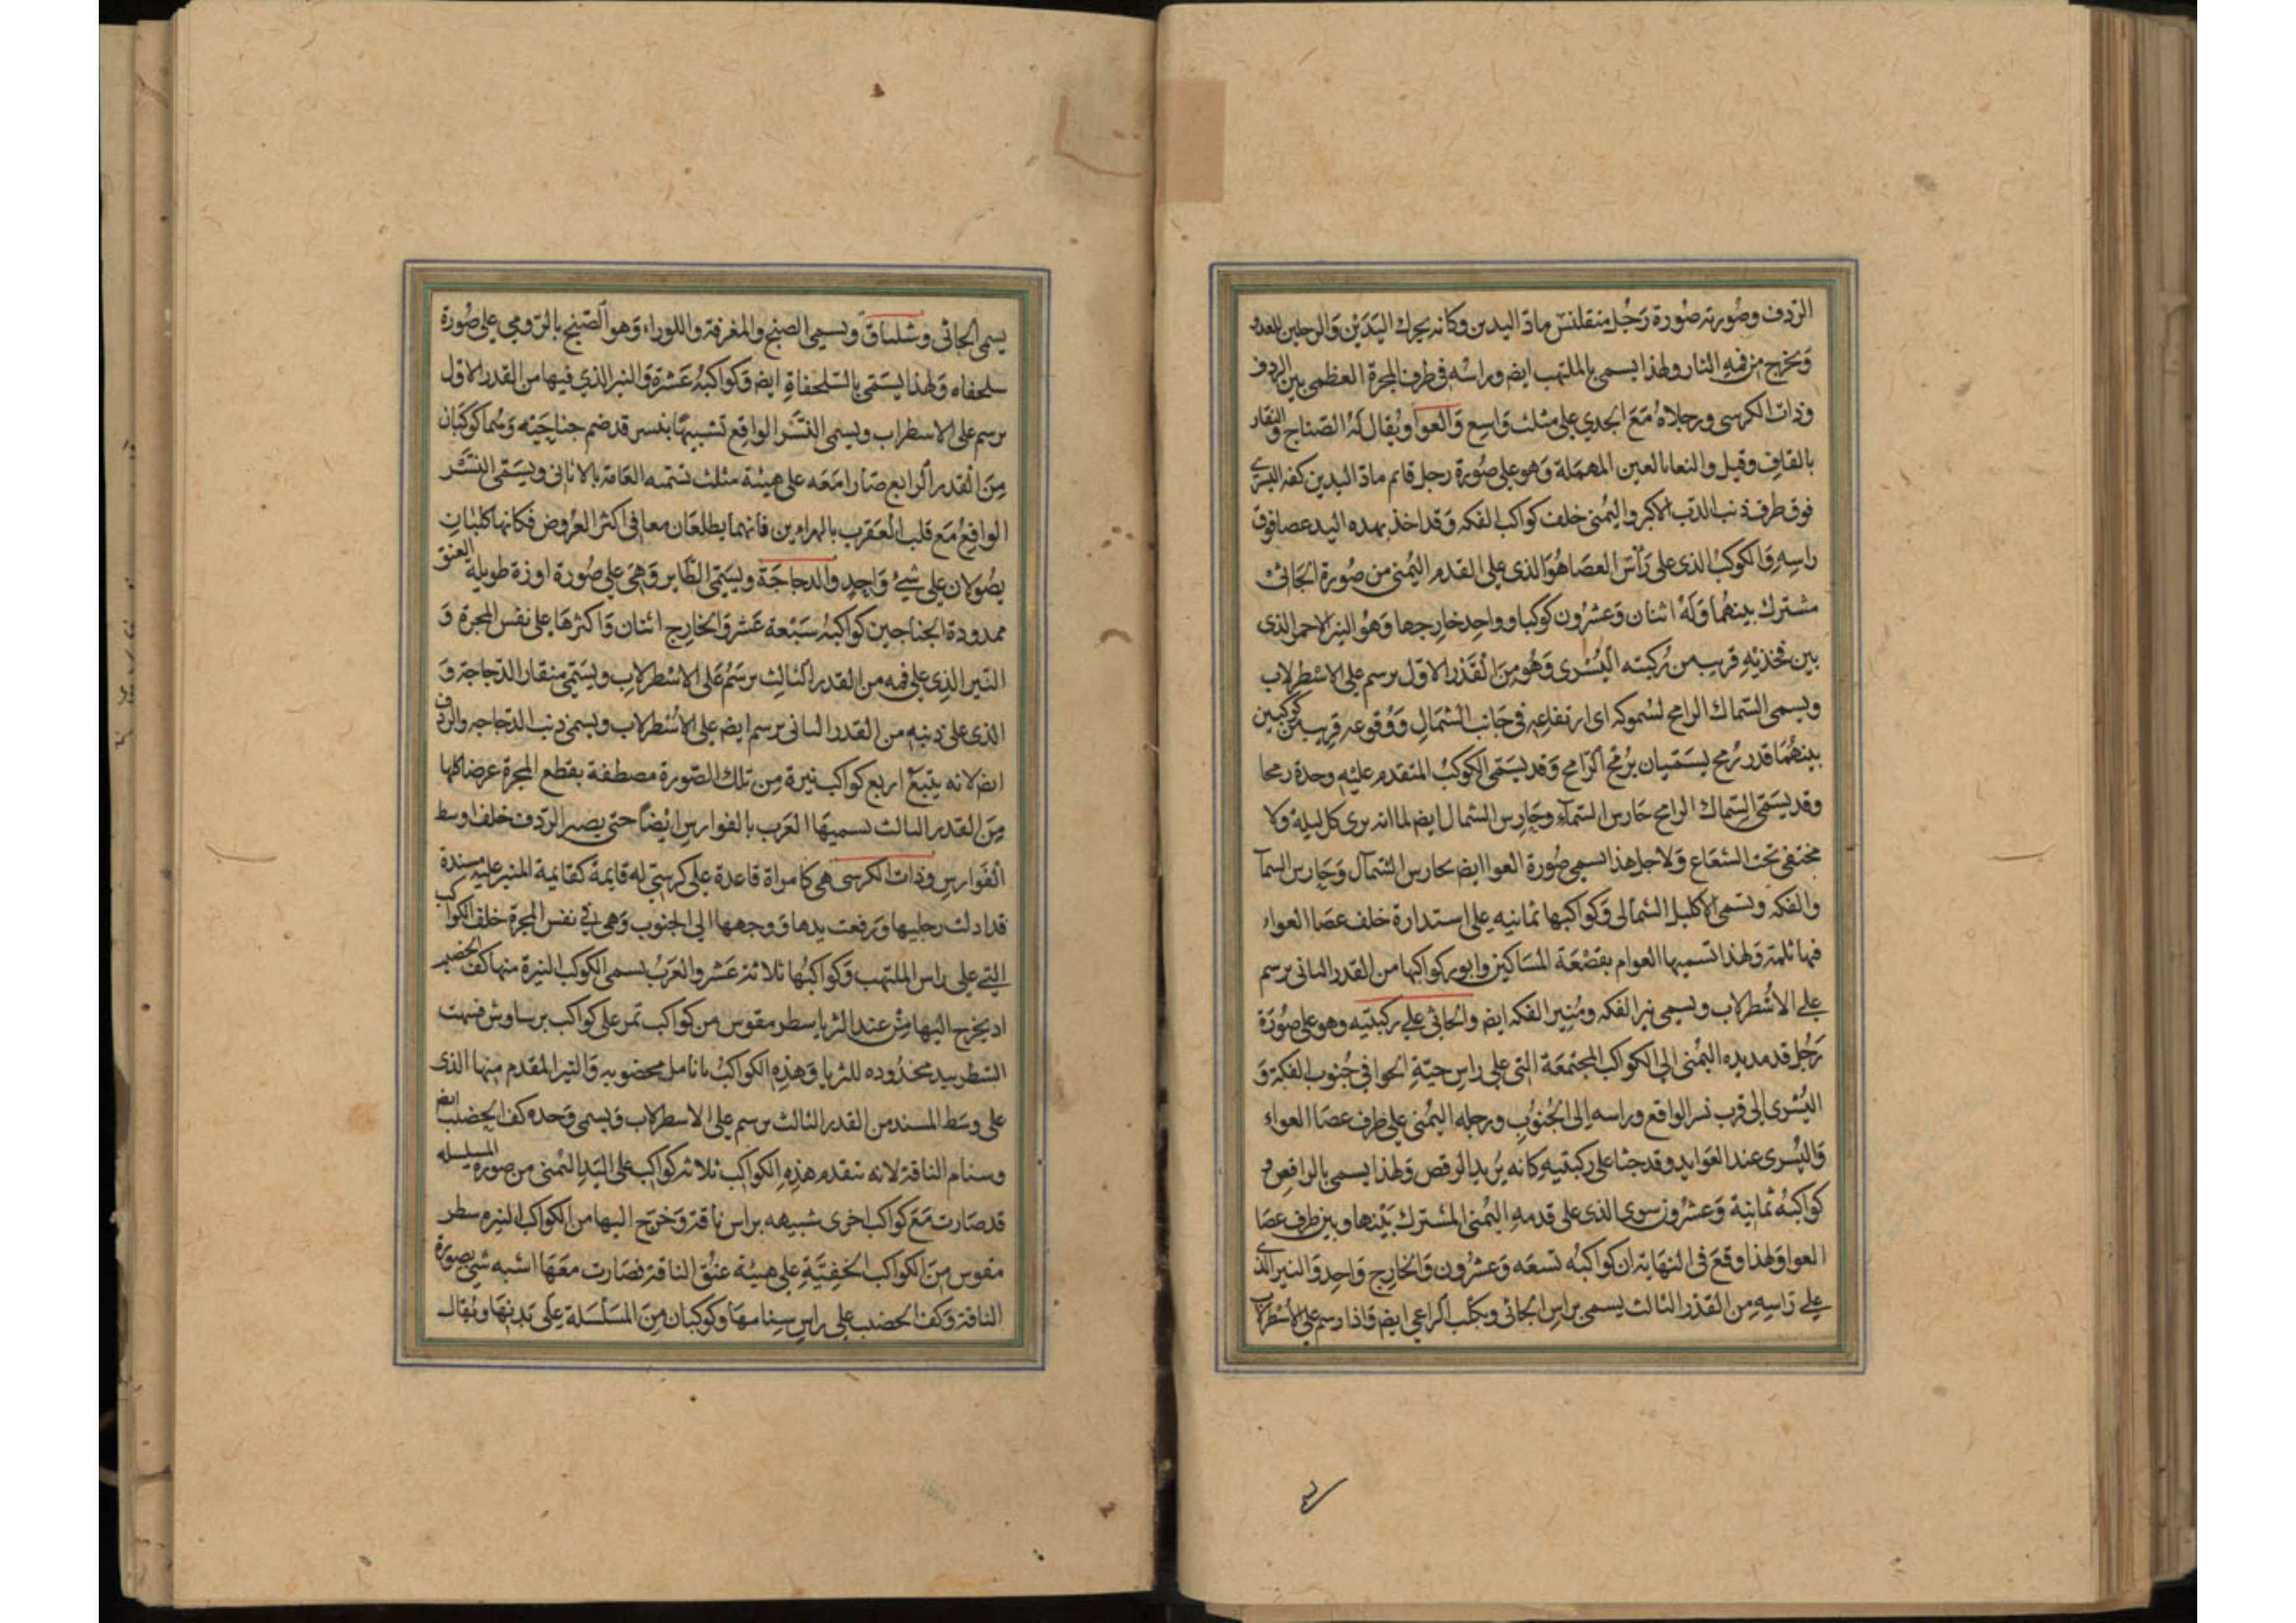 الردف وصورته صورة رجل متقلنس ماد اليدين وكانه يحرك اليدين والرجلين للعدو
ويخرج من فمه النار ولهذا يسمى بالملتهب ايض وراسه في طرف المجرة العظمى بين الردف
وذات الكرسى ورجلاه مع الجدي على مثلث واسع والعوا ويقال له الصناج والنقار
بالقاف وقيل والنعا بالعين المهملة وهو على صورة رجل قائم ماد اليدين كفه اليسرى
فوق طرف ذنب الدب الاكبر واليمنى خلف كواكب الفكه وقد اخذ بهذه اليد عصا فوق
راسه والكوكب الذى على راس العصا هو الذى على القدم اليمنى من صورة الجاثى
مشترك بينهما وله اثنان وعشرون كوكبا وواحد خارجها وهو النير الاحمر الذى
بين فخذيه قريب من ركبته اليسرى وهو من القدر الاول يرسم على الاسطرلاب
ويسمى السماك الرامح لسموكه اى ارتفاعه في جانب الشمال ووقوعه قريب من كوكبين
بينهما قدر رمح يسميان برمح الرامح وقد يسمى الكوكب المتقدم عليه وحدة رمحا
وقد يسمى السماك الرامح حارس السماء وحارس الشمال ايض لما انه يرى كل ليلة ولا
يختفى تحت الشعاع ولاجل هذا يسمى صورة العوا ايض بحارس الشمال وحارس السما
والفكه ويسمى الاكليل الشمالى وكواكبها ثمانيه على استدارة خلف عصا العواء
فيها ثلمة ولهذا تسميها العوام بقصعة المساكين وانور كواكبها من القدر الثانى يرسم
على الاسطرلاب ويسمى نير الفكه ومنير الفكه ايض والجاثى على ركبتيه وهو على صورة
رجل قد مد يده اليمنى الى الكواكب المجتمعة التى على راس حية الحوا في جنوب الفكة و
اليسرى الى قرب نسر الواقع وراسه الى الجنوب ورجله اليمنى على طرف عصا العواء
واليسرى عند العوايد وقد جثا على ركبتيه كانه يريد الرقص ولهذا يسمى بالراقص و
كواكبه ثمانية وعشرون سوى الذى على قدمه اليمنى المشترك بينها وبين طرف عصا
العوا ولهذا وقع في النهاية ان كواكبه تسعه وعشرون والخارج واحد والنير الذى
على راسه من القدر الثالث يسمى براس الجاثى وبكلب الراعي ايض فاذا رسم على الاسطرلاب
يسمى الجاثى وشلياق ويسمى الصنج والمغرفة واللورا وهو الصنج بالرومي على صورة
سلحفاه ولهذا يسمى بالسلحفاة ايض وكواكبه عشرة والنير الذي فيها من القدر الاول
يرسم على الاسطرلاب ويسمى النسر الواقع تشبيها بنسر قد ضم جناحيه وثما كوكبان
من القدر الرابع صارا معه على هيئة مثلث تسميه العامة بالاثافى ويسمى النسر
الواقع مع قلب العقرب بالهرارين فانهما يطلعان معا في اكثر العروض فكانها كلبان
يصولان على شئ واحد والدجاجة ويسمى الطاير وهي على صورة اوزة طويلة العنق
ممدودة الجناحين كواكبه سبعة عشر والخارج اثنان واكثرها على نفس المجرة و
النير الذى على فمه من القدر الثالث يرسم على الاسطرلاب ويسمى منقار الدجاجة و
الذى على ذنبه من القدر الثانى يرسم ايض على الاسطرلاب ويسمى ذنب الدجاجه والردف
ايض لانه يتبع اربع كواكب نيرة من تلك الصورة مصطفة يقطع المجرة عرضا كلها
من القدر الثالث تسميها العرب بالفوارس ايضا حتى يصير الردف خلف اوسط
الفوارس وذات الكرسى هي كامراة قاعدة على كرسي له قايمة كقايمة المنبر عليه مسندة
قد ادلت رجليها ورفعت يدها ووجهها الى الجنوب وهي في نفس المجرة خلف الكواكب
التي على راس الملتهب وكواكبها ثلاثة عشر والعرب تسمى الكوكب النيرة منها كف الخضيب
اد يخرج اليها من عند الثريا سطر مقوس من كواكب تمر على كواكب برساوش فشبهت
السطر بيد مخذوده للثريا وهذه الكواكب بانامل مخضوبه والنير المقدم منها الذى
على وسط المسند من القدر الثالث يرسم على الاسطرلاب ويسمى وحده كف الخضيب ايض
وسنام الناقة لانه تتقدم هذه الكواكب ثلاثة كواكب على اليد اليمنى من صورة المسلسله
قد صارت مع كواكب اخرى شبيهه براس ناقة وخرج اليها من الكواكب النيره سطر
مقوس من الكواكب الخفية على هيئة عنق الناقة فصارت معها اشبه شئ بصورة
الناقة وكف الخضيب على راس سنامها وكوكبان من المسلسلة على بدنها ويقال